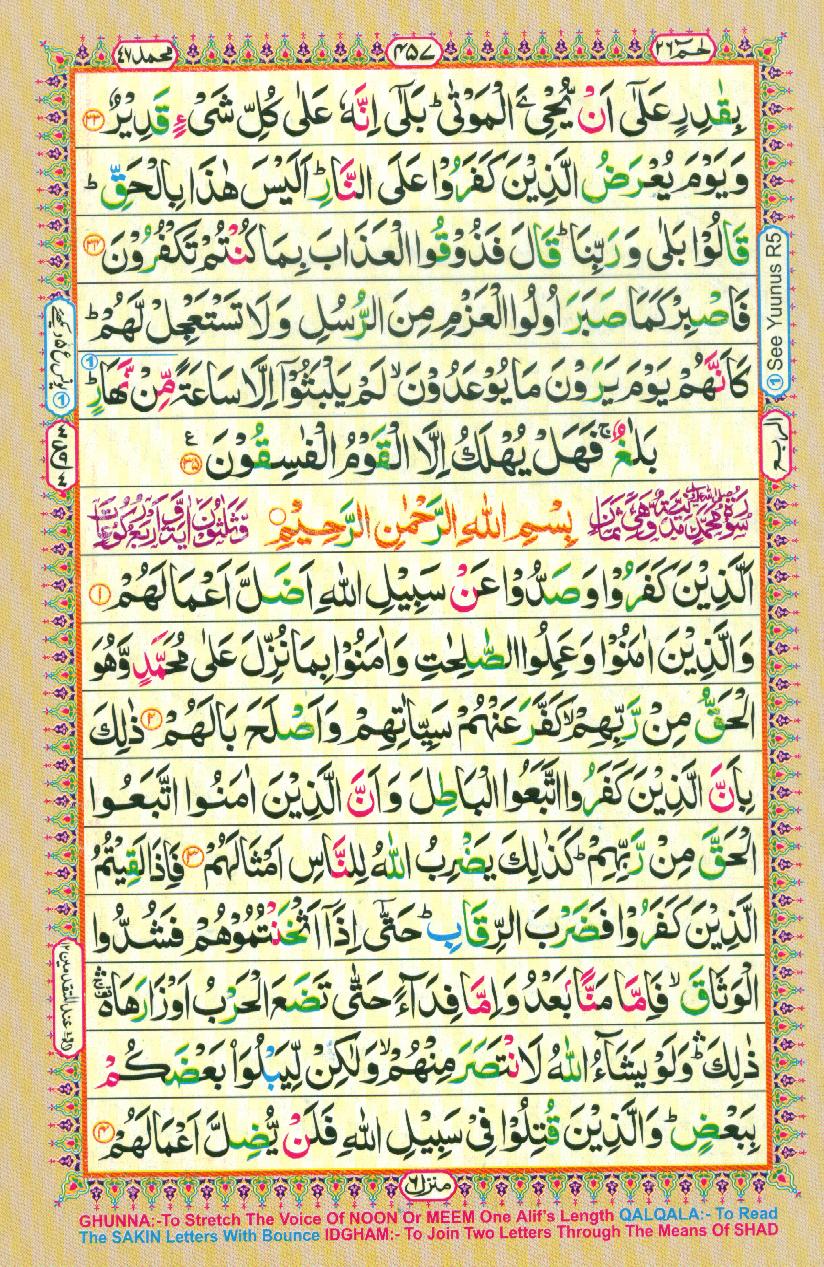 محمد ٤٧
٤٥٧
حٰمٓ ٢٦
بِقٰدِرٍ عَلٰٓى اَنْ يُّحْیِۦَ الْمَوْتٰى ؕ بَلٰٓى اِنَّهٗ عَلٰى كُلِّ شَیْءٍ قَدِیْرٌ ﴿۳۳﴾
وَ یَوْمَ یُعْرَضُ الَّذِیْنَ كَفَرُوْا عَلَى النَّارِ ؕ اَلَیْسَ هٰذَا بِالْحَقِّ ؕ
قَالُوْا بَلٰى وَ رَبِّنَا ؕ قَالَ فَذُوْقُوا الْعَذَابَ بِمَا كُنْتُمْ تَكْفُرُوْنَ ﴿۳۴﴾
فَاصْبِرْ كَمَا صَبَرَ اُولُوا الْعَزْمِ مِنَ الرُّسُلِ وَ لَا تَسْتَعْجِلْ لَّهُمْ ؕ
كَاَنَّهُمْ یَوْمَ یَرَوْنَ مَا یُوْعَدُوْنَ ۙ لَمْ یَلْبَثُوْۤا اِلَّا سَاعَةً مِّنْ نَّهَارٍ ؕ
بَلٰغٌ ۚ فَهَلْ یُهْلَكُ اِلَّا الْقَوْمُ الْفٰسِقُوْنَ ﴿۳۵﴾
سُوْرَةُ مُحَمَّدٍ مَّدَنِیَّةٌ وَّهِیَ ثَمَانٌ
بِسْمِ اللّٰهِ الرَّحْمٰنِ الرَّحِیْمِ
وَّثَلٰثُوْنَ اٰیَةً وَّاَرْبَعُ رُكُوْعَاتٍ
اَلَّذِیْنَ كَفَرُوْا وَ صَدُّوْا عَنْ سَبِیْلِ اللّٰهِ اَضَلَّ اَعْمَالَهُمْ ﴿۱﴾
وَ الَّذِیْنَ اٰمَنُوْا وَ عَمِلُوا الصّٰلِحٰتِ وَ اٰمَنُوْا بِمَا نُزِّلَ عَلٰى مُحَمَّدٍ وَّ هُوَ
الْحَقُّ مِنْ رَّبِّهِمْ ۙ كَفَّرَ عَنْهُمْ سَیِّاٰتِهِمْ وَ اَصْلَحَ بَالَهُمْ ﴿۲﴾ ذٰلِكَ
بِاَنَّ الَّذِیْنَ كَفَرُوا اتَّبَعُوا الْبَاطِلَ وَ اَنَّ الَّذِیْنَ اٰمَنُوا اتَّبَعُوا
الْحَقَّ مِنْ رَّبِّهِمْ ؕ كَذٰلِكَ یَضْرِبُ اللّٰهُ لِلنَّاسِ اَمْثَالَهُمْ ﴿۳﴾ فَاِذَا لَقِیْتُمُ
الَّذِیْنَ كَفَرُوْا فَضَرْبَ الرِّقَابِ ؕ حَتّٰۤى اِذَاۤ اَثْخَنْتُمُوْهُمْ فَشُدُّوا
الْوَثَاقَ ۙ فَاِمَّا مَنًّۢا بَعْدُ وَ اِمَّا فِدَآءً حَتّٰى تَضَعَ الْحَرْبُ اَوْزَارَهَا
ذٰلِكَ ۛؕ وَ لَوْ یَشَآءُ اللّٰهُ لَانْتَصَرَ مِنْهُمْ ۙ وَ لٰكِنْ لِّیَبْلُوَا۠ بَعْضَكُمْ
بِبَعْضٍ ؕ وَ الَّذِیْنَ قُتِلُوْا فِیْ سَبِیْلِ اللّٰهِ فَلَنْ یُّضِلَّ اَعْمَالَهُمْ ﴿۴﴾
① See Yuunus R5
منزل ٦
GHUNNA:-To Stretch The Voice Of NOON Or MEEM One Alif's Length QALQALA:- To Read
The SAKIN Letters With Bounce IDGHAM:- To Join Two Letters Through The Means Of SHAD